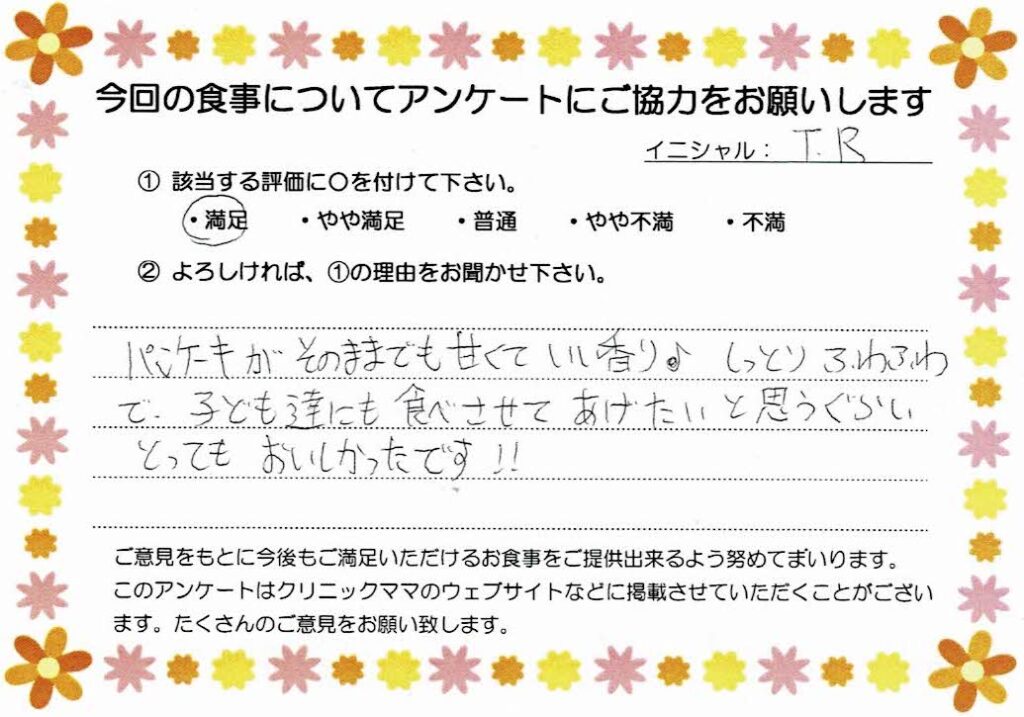 今回の食事についてアンケートにご協力をお願いします
イニシャル： T.R
① 該当する評価に〇を付けて下さい。
・満足 ・やや満足 ・普通 ・やや不満 ・不満
② よろしければ、①の理由をお聞かせ下さい。
パンケーキが そのままでも 甘くて いい香り♪ しっとり ふわふわ
で、子ども達にも 食べさせて あげたい と思うぐらい
とっても おいしかったです!!
ご意見をもとに今後もご満足いただけるお食事をご提供出来るよう努めてまいります。
このアンケートはクリニックママのウェブサイトなどに掲載させていただくことがござい
ます。たくさんのご意見をお願い致します。